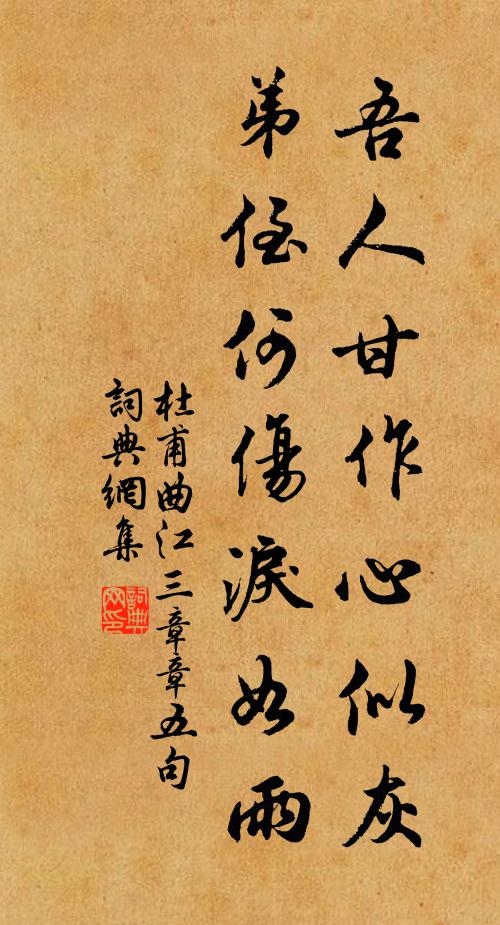 吾人甘作心似灰
弟侄何傷淚如雨
杜甫曲江三章章五句
詞典網集
詞典网印